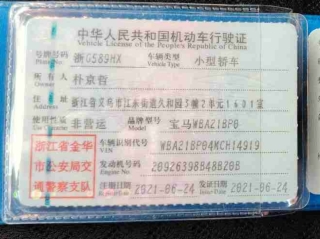 中华人民共和国机动车行驶证
Vehicle License of the People's Republic of China
号牌号码 浙G589HX 车辆类型 小型轿车
Plate No. Vehicle Type
所有人 朴京哲
Owner
住址 浙江省义乌市江东街道久和园3幢2单元1601室
Address
使用性质 非营运 品牌型号 宝马WBA21BP0
Use Character Model
浙江省金华
市公安局交
通警察支队
车辆识别代号 WBA21BP04MCH14919
VIN
发动机号码 20926398B48B20B
Engine No.
注册日期 2021-06-24 发证日期 2021-06-24
Register Date Issue Date